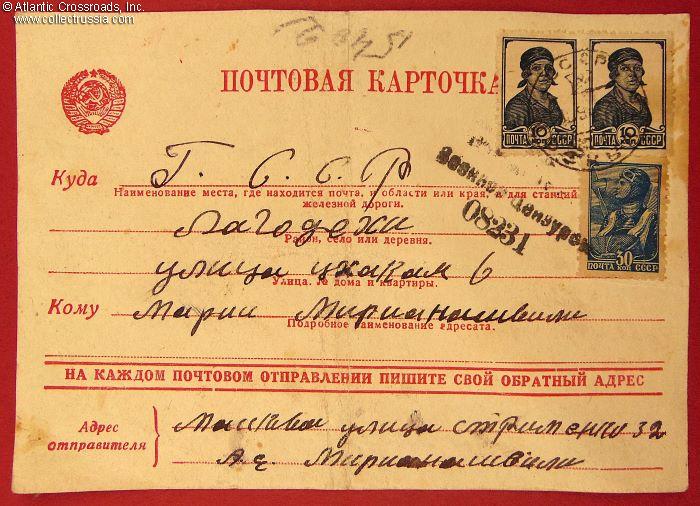 © Atlantic Crossroads, Inc.
www.collectrussia.com
ПОЧТОВАЯ КАРТОЧКА
10 КОП
ПОЧТА СССР
10 КОП
ПОЧТА СССР
30
ПОЧТА КОП СССР
Военной Цензурой
08231
Куда
Г. С. С. Р
Наименование места, где находится почта, и области или края, а для станций
железной дороги.
Лагодехи
Район, село или деревня.
улица цхакая 6
Улица. № дома и квартиры.
Кому
Марии Мирианашвили
Подробное наименование адресата.
НА КАЖДОМ ПОЧТОВОМ ОТПРАВЛЕНИИ ПИШИТЕ СВОЙ ОБРАТНЫЙ АДРЕС
Адрес
отправителя
Масква улица 32
Мирианашвили